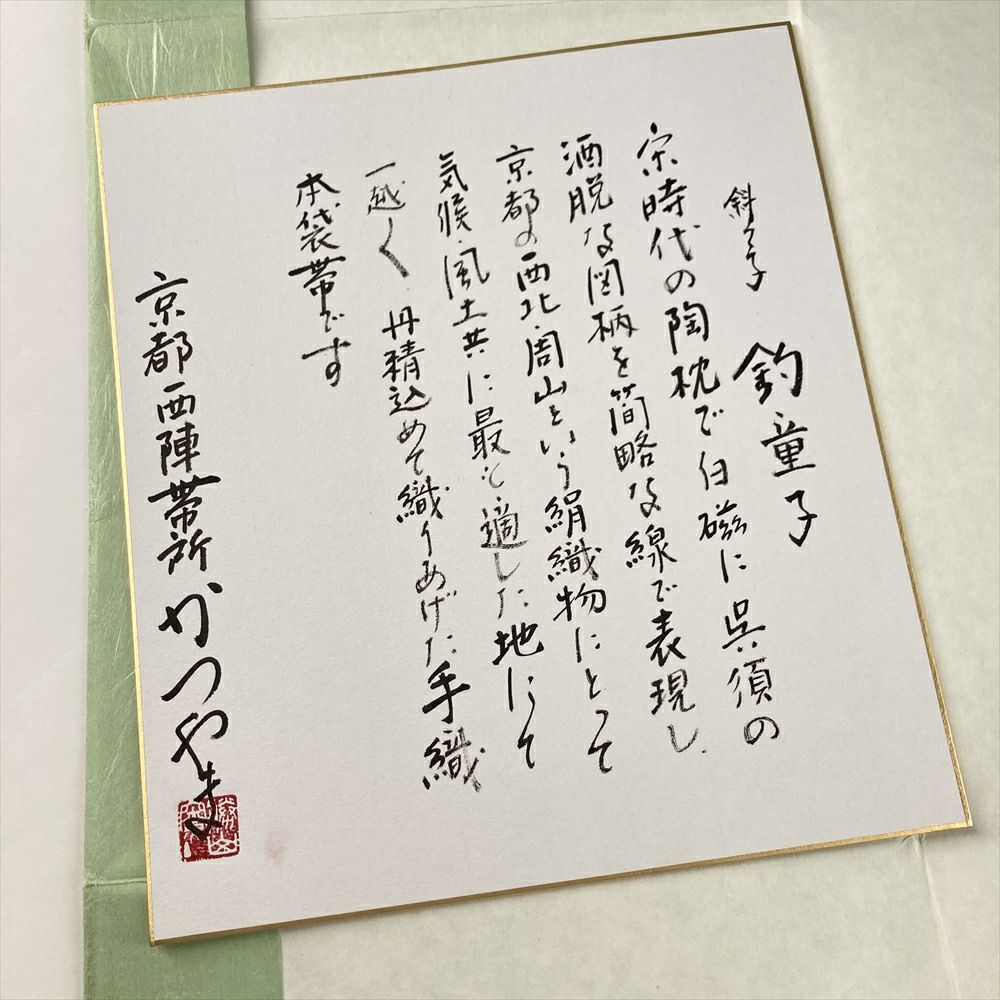 斜子 釣童子
宋時代の陶枕で白磁に呉須の
洒脱な図柄を簡略な線で表現し、
京都の西北・周山という絹織物にとって
気候・風土共に最も適した地にて
一越〱 丹精込めて織りあげた手織
本袋帯です
京都西陣帯所かつやま